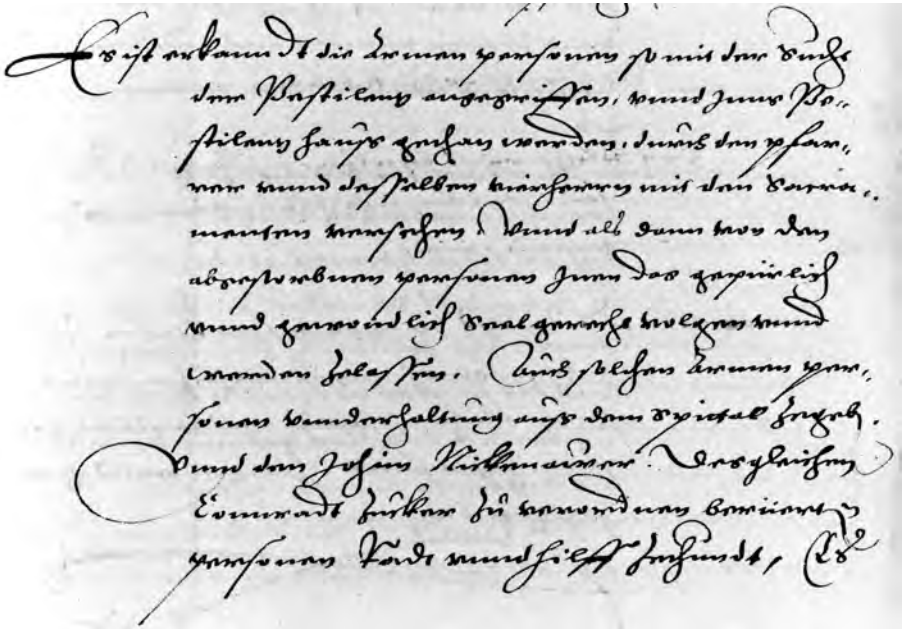 Es ist erkanndt die Armen personen so mit der Sucht
der Pestilentz angegriffen, vnnd Jnns Pe„
stilentz hauss gethan werden, durch den pfar„
rer vnnd desselben vierherrn mit den Sacra„
menten versehen Vnnd als dann von den
abgestorbnen personen Jnen das gepürlich
vnnd gewondlich Seelgerecht volgen vnnd
werden zelassen. Auch solchen Armen per„
sonen vnnderhaltung auss dem Spittal zegeb.
Vnnd den Johim Desgleichen
Connradt Zucker Zu verordnen berüerten
personen Radt vnnd hilff zethundt, Es